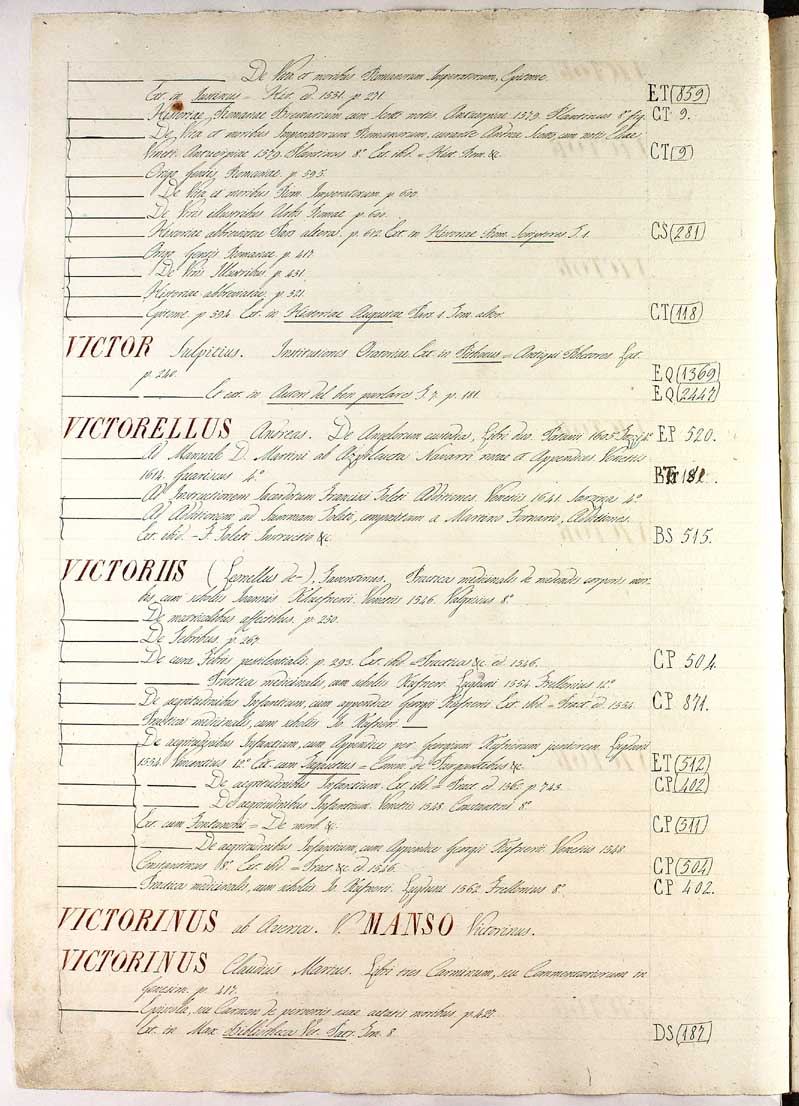 De Vita et moribus Romanorum Imperatorum, Epitome.
Ext. in Justinus = Hist. ed. 1551. p. 271. ET (859)
Historiae Romanae Breviarium cum Scoti notis Antverpiae 1579. Plantinus 8° fig. CT 9.
De Vita et moribus Imperatorum Romanorum, curante Andrea Scoto, cum notis Eliae
Vineti. Antverpiae 1579. Plantinus 8° Ext. ibid = Hist. Rom. &c. CT (9)
Origo gentis Romanae. p. 595.
De Vita et moribus Rom. Imperatorum p. 600.
De Viris illustribus Urbis Romae p. 601.
Historiae abbreviatae Pars altera. p. 612. Ext. in Historiae Rom. Scriptores T. 1. CS (281)
Origo Gentis Romanae. p. 417.
De Viris Illustribus. p. 431.
Historiae abbreviatae. p. 521.
Epitome. p. 594. Ext. in Historiae Augustae Pars 1. Tom. alter. CT (118)
VICTOR Sulpitius. Institutiones Oratoriae. Ext. in Pithoeus = Antiqui Rhetores Lat.
p. 240. EQ (1369)
Et ext. in Autori del ben parlare T. 7. p. 181. EQ (2447)
VICTORELLUS Andreas. De Angelorum custodia, Libri duo. Patavii 1605. 4° EP 520.
Ad Manuale D. Martini ab Azpilcueta Navarri notae et Appendices. Venetiis
1614. Guariscus 4°
Ad Instructionem Sacerdotum Francisci Toleti Additiones Venetiis 1641. 4°
Ad Additionem ad Summam Toleti, compositam a Martino Fornario, Additiones.
Ext. ibid. = F. Toleti Instructio &c. BS 515.
VICTORIIS (Leonellus de-), Faventinus. Practica medicinalis de medendis corporis mor-
bis cum scholiis Ioannis Kufnerii. Venetiis 1546. Valgrisius 8°
De matricalibus affectibus. p. 250.
De Febribus. p. 267.
De cura Febris pestilentialis. p. 293. Ext. ibid = Practica &c. ed. 1546. CP 504.
Practica medicinalis, cum scholiis Kufneri. Lugduni 1554. Frellonius 12°
De aegritudinibus Infantium, cum appendice Georgii Kufnerii. Ext. ibid = Pract. ed. 1554. CP 871.
Practica medicinalis, cum scholiis Io. Kufneri
De aegritudinibus Infantium, cum Appendice per Georgium Kufnerium juniorem. Lugduni
1554. Vincentius 12° Ext. cum = Comm. de &c. ET (512)
De aegritudinibus Infantium. Ext. ibid = Pract. ed. 1562 p. 743. CP (402)
De aegritudinibus Infantium. Venetiis 1548. Constantinus 8°
Ext. cum Fontanonus = De morb. &c. CP (511)
De aegritudinibus Infantium, cum Appendice Georgii Kufnerii. Venetiis 1548.
Constantinus 8°. Ext. ibid = Pract. &c. ed. 1546. CP (504)
Practica medicinalis, cum scholiis Io. Kufneri. Lugduni 1562. Frellonius 8° CP 402.
VICTORINUS ab Aversa. V. MANSO Victorinus.
VICTORINUS Claudius Marius. Libri tres Carminum, seu Commentariorum in
Genesim. p. 417.
Epistola, seu Carmen de perversis suae aetatis moribus. p. 427.
Ext. in Max. Bibliotheca Vet. Patr. Tom. 8. DS (187)